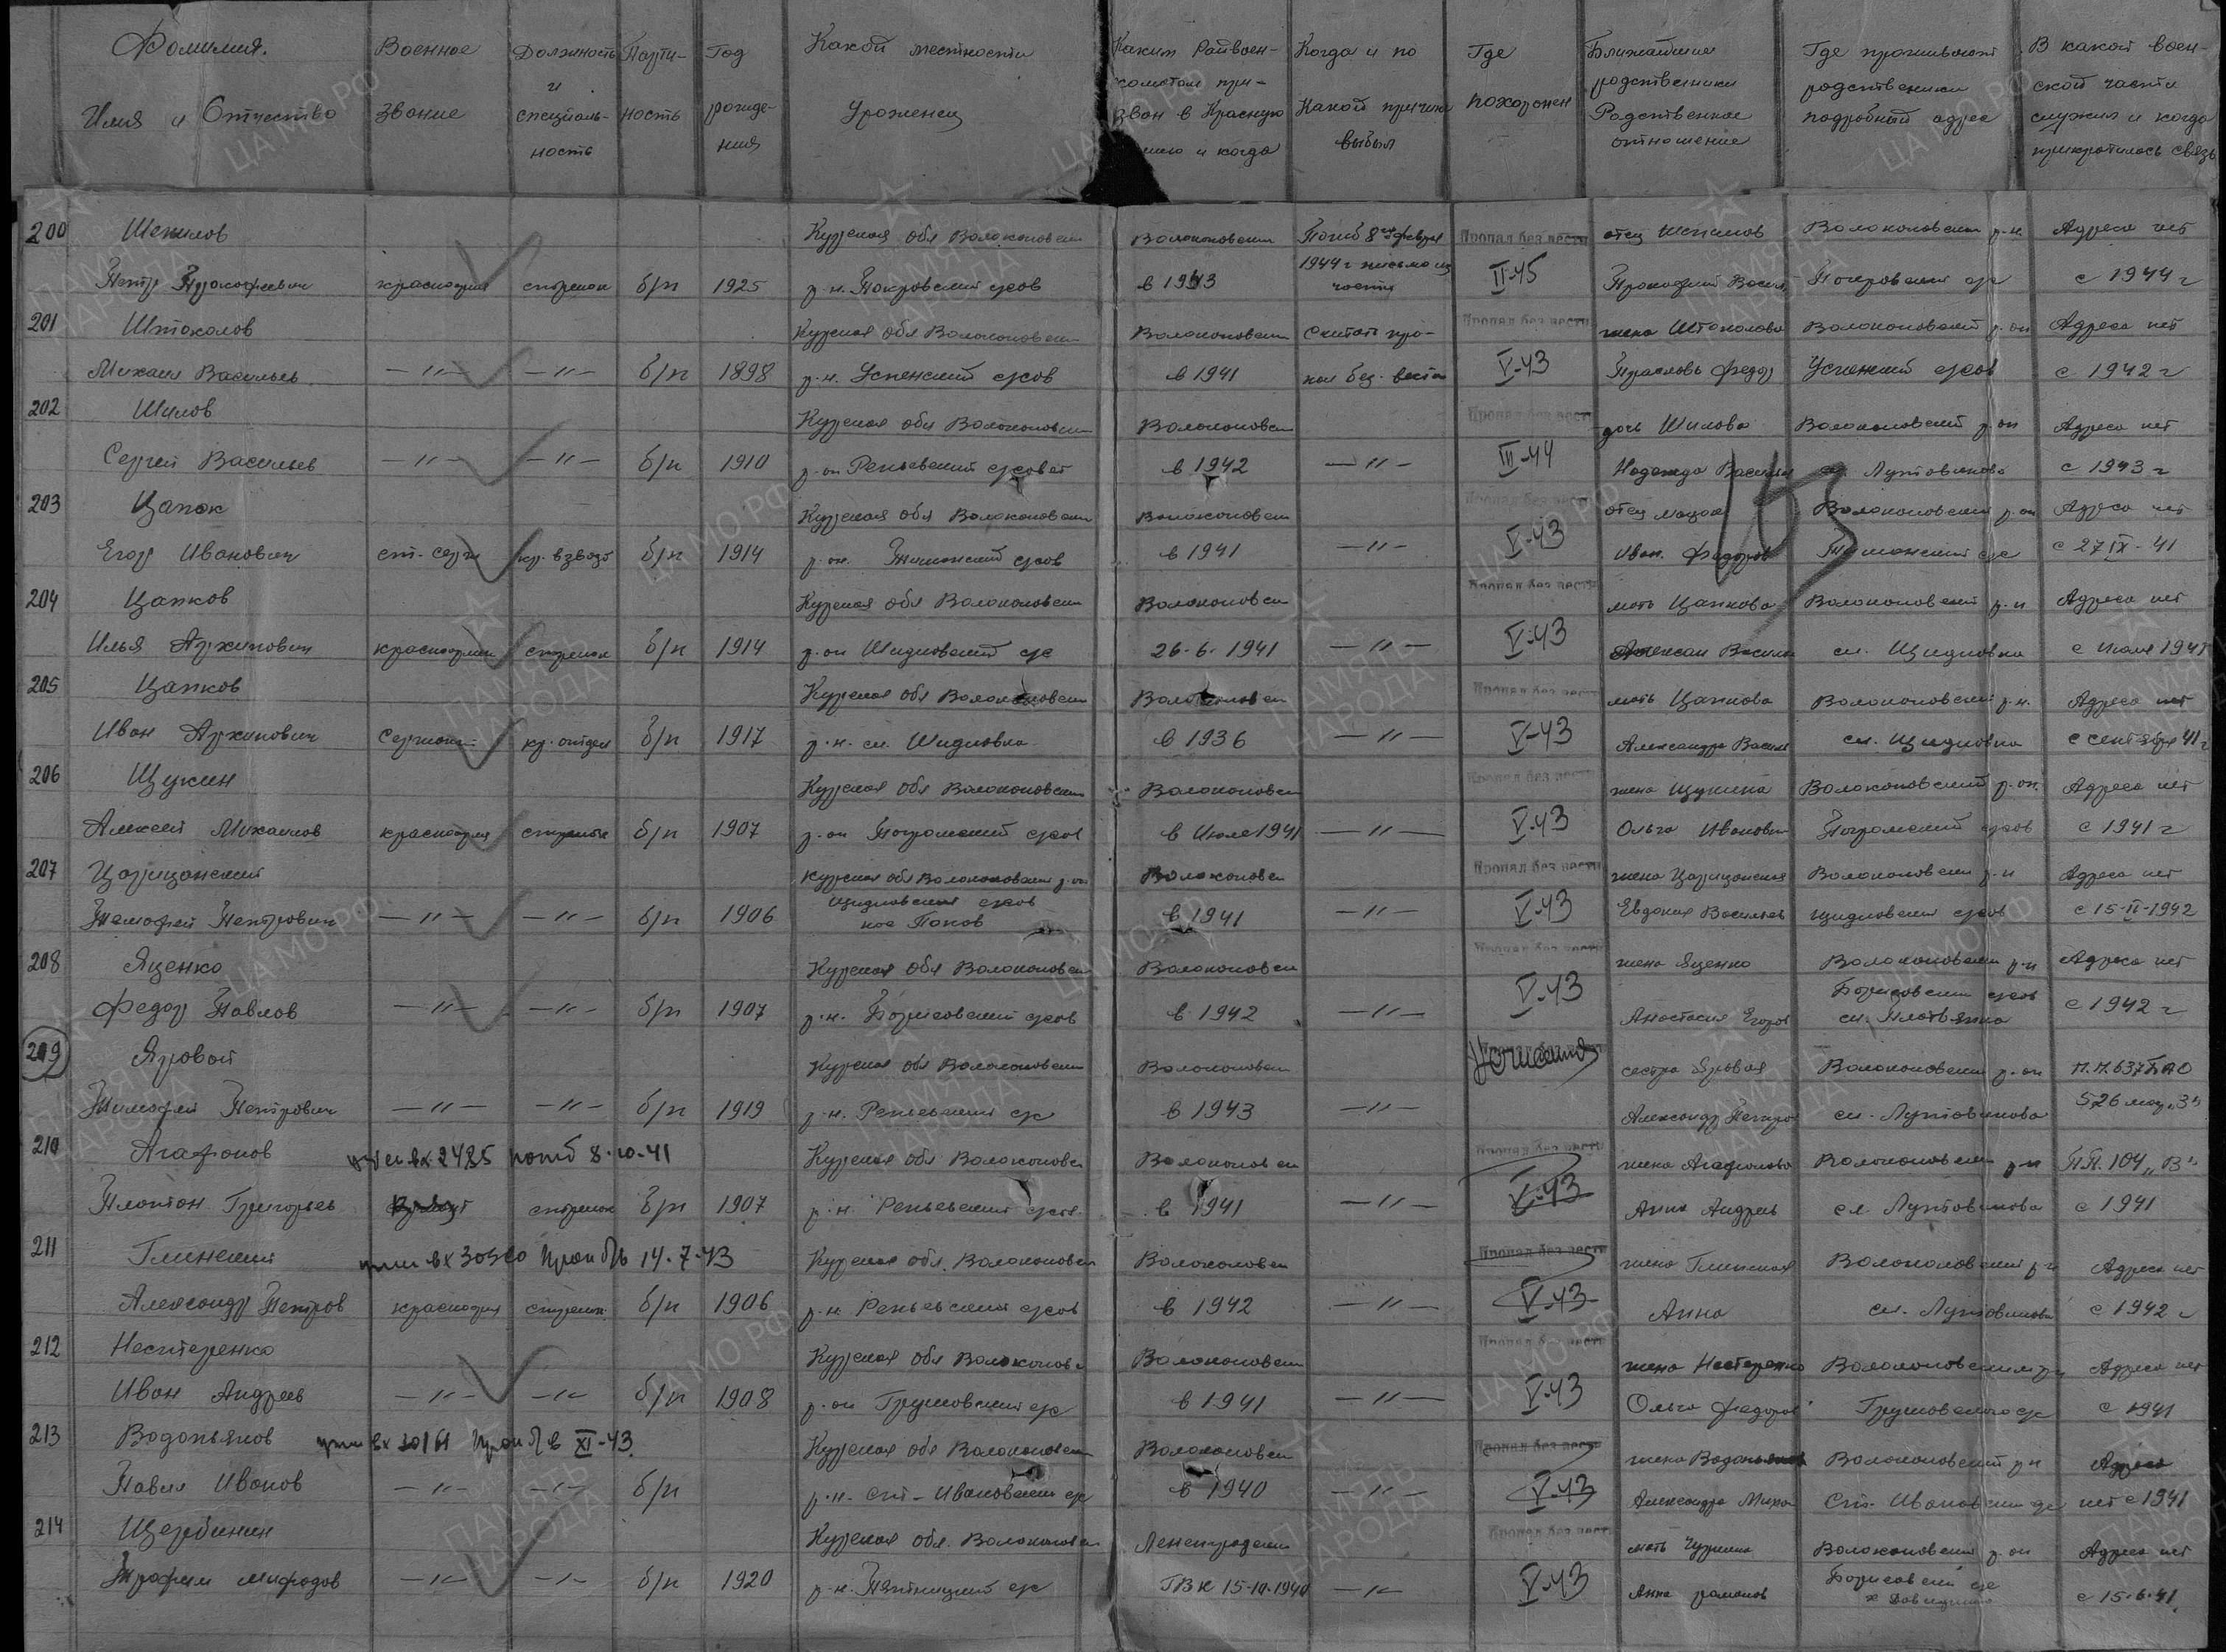 Фамилия. Имя и Отчество
Военное звание
Должность и специальность
Партийность
Год рождения
Какой местности Уроженец
Каким Райвоенкоматом призван в Красную и когда
Когда и по какой причине выбыл
Где похоронен
Ближайшие родственники Родственное отношение
Где проживают родственники подробный адрес
В какой воинской части служил и когда прекратилась связь
200 Шепилов Курская обл Волоконовский Волоконовским Погиб 8 февраля Пропал без вести отец Шепилов Волоконовский р-н. Адреса нет
Петр Прокофьевич красноарм стрелок б/п 1925 р-н. Покровский с/сов в 1943 1944 г письмо из части II-45 Прокофий Васил Покровский с/с с 1944 г
201 Штоколов Курская обл Волоконовский Волоконовским Считать про- Пропал без вести жена Штоколова Волоконовский р-он Адреса нет
Михаил Васильев —"— —"— б/п 1898 р-н. Успенский с/сов в 1941 пал без вести V-43 Федор Успенский с/сов с 1942 г
202 Шилов Курская обл Волоконовский Волоконовским Пропал без вести дочь Шилова Волоконовский р-он Адреса нет
Сергей Васильев —"— —"— б/п 1910 р-он Репьевский с/совет в 1942 —"— III-44 Надежда Васильев сл. Лутовиново с 1943 г
203 Цапок Курская обл Волоконовский Волоконовским Пропал без вести отец Волоконовский р-он Адреса нет
Егор Иванович ст. серж ком. взвода б/п 1914 р-он. с/сов в 1941 —"— V-43 Иван. Федоров с/с с 27 IX-41
153
204 Цапков Курская обл Волоконовский Волоконовским Пропал без вести мать Цапкова Волоконовский р-н Адреса нет
Илья Архипович красноармеец стрелок б/п 1914 р-он Шидловский с/с 26-6-1941 —"— V-43 Васил сл. Шидловка с Июля 1941
205 Цапков Курская обл Волоконовский Волоконовским Пропал без вести мать Цапкова Волоконовский р-н. Адреса нет
Иван Архипович Сержант ком. отдел б/п 1917 р-н. сл. Шидловка в 1936 —"— V-43 Александра Васил сл. Шидловка с сентября 41 г
206 Щукин Курская обл Волоконовский Волоконовским Пропал без вести жена Щукина Волоконовский р-он. Адреса нет
Алексей Михайлов красноарм стрелок б/п 1907 р-он Погромский с/сов в Июле 1941 —"— V-43 Ольга Ивановн Погромский с/сов с 1941 г
207 Царицанский Курская обл Волоконовский р-он Волоконовским Пропал без вести жена Царицанская Волоконовский р-н Адреса нет
Тимофей Петрович —"— —"— б/п 1906 Шидловский с/сов в 1941 —"— V-43 Евдокия Васильев Шидловский с/сов с 15-II-1942
208 Яценко Курская обл Волоконовский Волоконовским Пропал без вести жена Яценко Волоконовский р-н Адреса нет
Федор Павлов —"— —"— б/п 1907 р-н. Борисовский с/сов в 1942 —"— V-43 Анастасия Егоров Борисовский с/сов сл. Плотвянка с 1942 г
209 Яровой Курская обл Волоконовский Волоконовским сестра Яровая Волоконовский р-он П.П. 637
Тимофей Петрович —"— —"— б/п 1919 р-н. Репьевский с/с в 1943 —"— Александр Петров сл. Лутовиново 526
210 Агафонов вх 2485 погиб 8-10-41 Курская обл Волоконовск Волоконовским Пропал без вести жена Агафонова Волоконовский р-н П.П. 104 "В"
Платон Григорьев стрелок б/п 1907 р-н. Репьевский с/сов в 1941 —"— V-43 Анна Андреев сл. Лутовиново с 1941
211 Глинский вх 30520 проп б/в 14-7-43 Курская обл. Волоконовск Волоконовским Пропал без вести жена Глинская Волоконовский р-н Адреса нет
Александр Петров красноарм стрелок б/п 1906 р-н Репьевский с/сов в 1942 —"— V-43 Анна сл. Лутовиново с 1942 г
212 Нестеренко Курская обл Волоконовск Волоконовским Пропал без вести жена Нестеренко Волоконовский р-н Адреса нет
Иван Андреев —"— —"— б/п 1908 р-он Грушовский с/с в 1941 —"— V-43 Ольга Федоров Грушовского с/с с 1941
213 Водопьянов проп б/в XI-43 Курская обл Волоконовский Волоконовским Пропал без вести жена Водопьянов Волоконовский р-н Адреса
Павел Иванов —"— —"— б/п р-н. Ст-Ивановский с/с в 1940 —"— V-43 Александра Михай Ст. Ивановский с/с нет с 1941
214 Щербинин Курская обл. Волоконовск Ленинградским Пропал без вести мать Волоконовский р-он Адреса нет
Трофим Мефодов —"— —"— б/п 1920 р-н. Пятницкий с/с ГВК 15-10-1940 —"— V-43 Анна Романов Борисовский с/с с 15-6-41